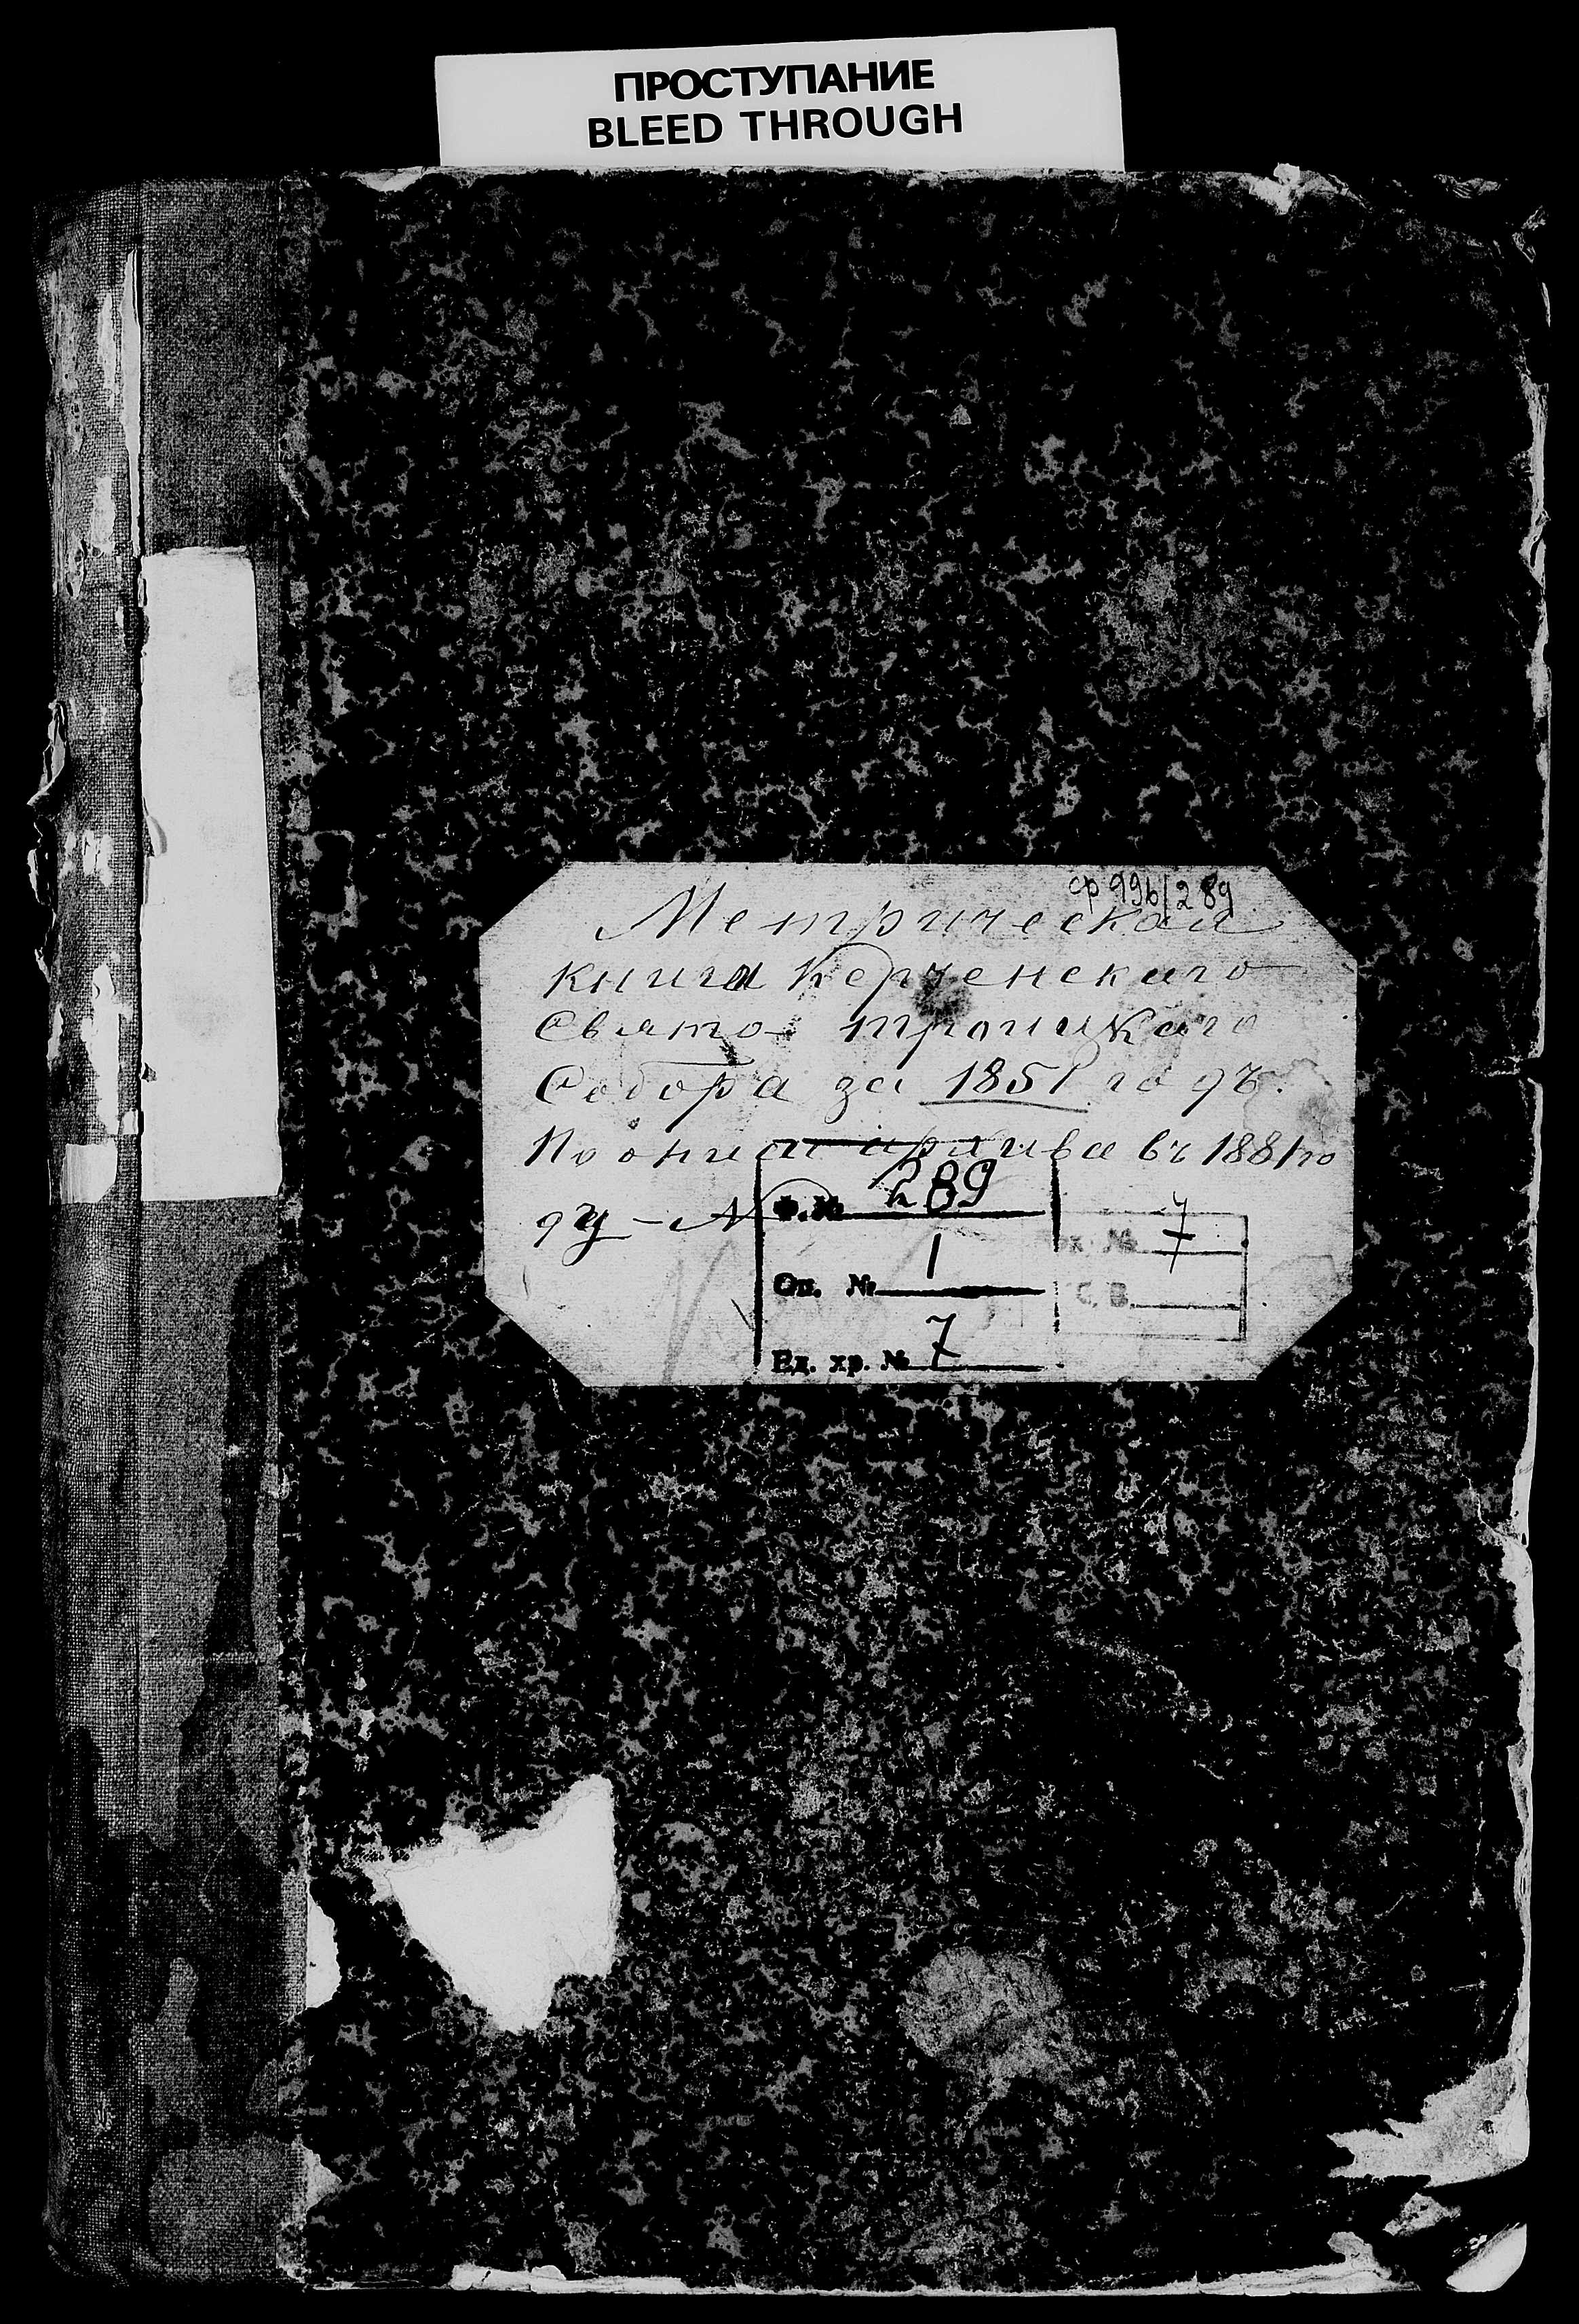 ПРОСТУПАНИЕ
BLEED THROUGH
ф 996/289
Метрическая
книга Керченскаго
Свято-Троицкаго
Собора за 1851 годъ.
По описи архива въ 1881 го
ду - №
Ф. № 289
Оп. № 1
Ед. хр. № 7
х. № 7
С. В.